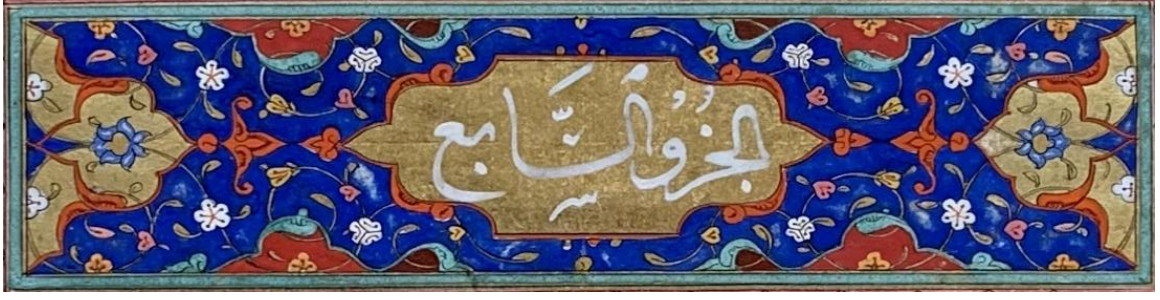 الجزو السّابع